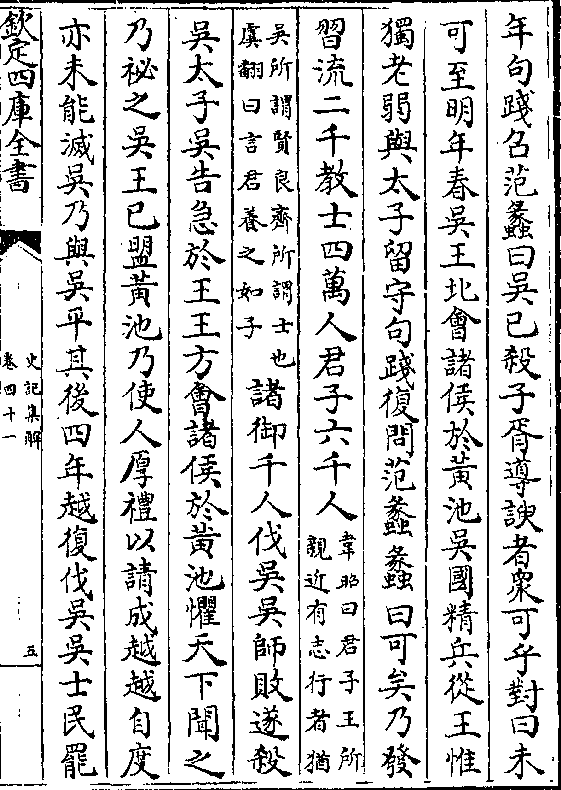 年句踐召范蠡曰吳已殺子胥導諛者衆可乎對曰未
可至明年春吳王北會諸侯於黃池吳國精兵從王惟
獨老弱與太子留守句踐復問范蠡蠡曰可矣乃發
習流二千教士四萬人君子六千人
韋昭曰君子王所
親近有志行者猶
吳所謂賢良齊所謂士也
虞翻曰言君養之如子
諸御千人伐吳吳師敗遂殺
吳太子吳告急於王王方會諸侯於黃池懼天下聞之
乃祕之吳王已盟黃池乃使人厚禮以請成越越自度
亦未能滅吳乃與吳平其後四年越復伐吳吳士民罷
欽定四庫全書
史記集解
卷四十一
五